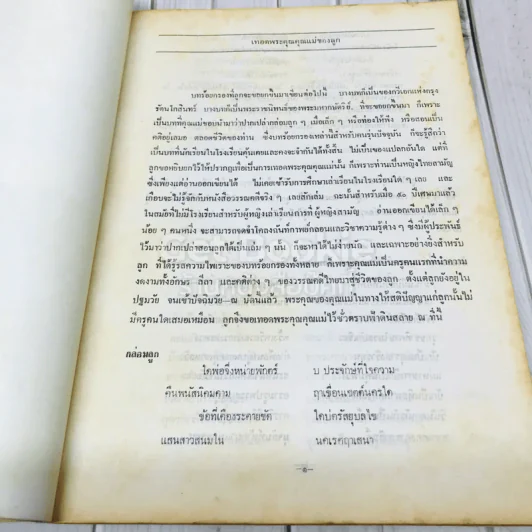 เทอดพระคุณคุณแม่ของลูก
บทร้อยกรองที่ลูกจะขอยกขึ้นมาเขียนต่อไปนี้ บางบทก็เป็นของกวีเอกแห่งกรุง
รัตนโกสินทร์ บางบทก็เป็นพระราชนิพนธ์ของพระมหากษัตริย์ ที่จะขอยกขึ้นมา ก็เพราะ
เป็นบทที่คุณแม่ชอบนำมาว่าปากเปล่ากล่อมลูก ๆ เมื่อเด็ก ๆ หรือท่องให้ฟัง หรือสอนเป็น
คติอยู่เสมอ ตลอดชีวิตของท่าน ซึ่งบทร้อยกรองเหล่านี้สำหรับคนรุ่นปัจจุบัน ก็จะรู้สึกว่า
เป็นบทที่นักเรียนในโรงเรียนคุ้นเคยและคงจะจำกันได้ทั้งสิ้น ไม่เป็นของแปลกอันใด แต่ที่
ลูกขอหยิบยกไว้ให้ปรากฏเพื่อเป็นการเทอดพระคุณคุณแม่นั้น ก็เพราะท่านเป็นหญิงไทยสามัญ
ซึ่งเพียงแต่อ่านออกเขียนได้ ไม่เคยเข้ารับการศึกษาเล่าเรียนในโรงเรียนใด ๆ เลย และ
เกือบจะไม่รู้จักกับหนังสือวรรณคดีจริง ๆ เลยสักเล่ม ฉะนั้นสำหรับเมื่อ ๕๐ ปีเศษมาแล้ว
ในสมัยที่ไม่มีโรงเรียนสำหรับผู้หญิงเล่าเรียนการที่ ผู้หญิงสามัญ อ่านออกเขียนได้เล็ก ๆ
น้อย ๆ คนหนึ่ง จะสามารถจดจำโคลงฉันท์กาพย์กลอนและวิชาความรู้ต่าง ๆ ซึ่งมีผู้ประพันธ์
ไว้มาว่าปากเปล่าสอนลูกได้เป็นเล่ม ๆ นั้น ก็จะหาได้ไม่ง่ายนัก และเฉพาะอย่างยิ่งสำหรับ
ลูก ที่ได้รู้รสความไพเราะของบทร้อยกรองทั้งหลาย ก็เพราะคุณแม่เป็นครูคนแรกที่นำความ
งดงามทั้งอักษร ลีลา และคติต่าง ๆ ของวรรณคดีไทยมาสู่ชีวิตของลูก ตั้งแต่ลูกยังอยู่ใน
ปฐมวัย จนเข้าปัจฉิมวัย ณ บัดนี้แล้ว พระคุณของคุณแม่ในทางให้สติปัญญาแก่ลูกนั้นไม่
มีครูคนใดเสมอเหมือน ลูกจึงขอเทอดพระคุณคุณแม่ไว้ชั่วตราบฟ้าดินสลาย ณ ที่นี้
กล่อมลูก
ใดพ่อจึ่งหน่ายพักตร์ บ ประจักษ์ที่ใจความ
คืนพนัสนิคมคาม ฤๅเขื่อนเขตต์นครใด
ข้อที่เคืองระคายขัด ใดบ่ตรัสอุบลไข
แสนสาวสนมใน นคเรศฤๅเสนา
—๑—